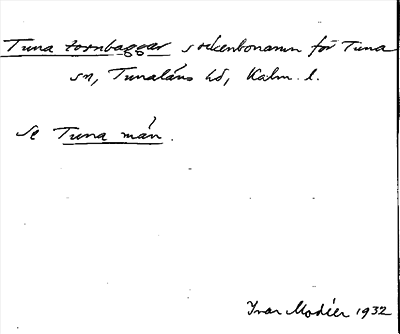 Tuna tornbaggar sockenbonamn för Tuna
sn, Tunaläns hd, Kalm. l.
Se Tuna mån.
Ivar Modéer 1932